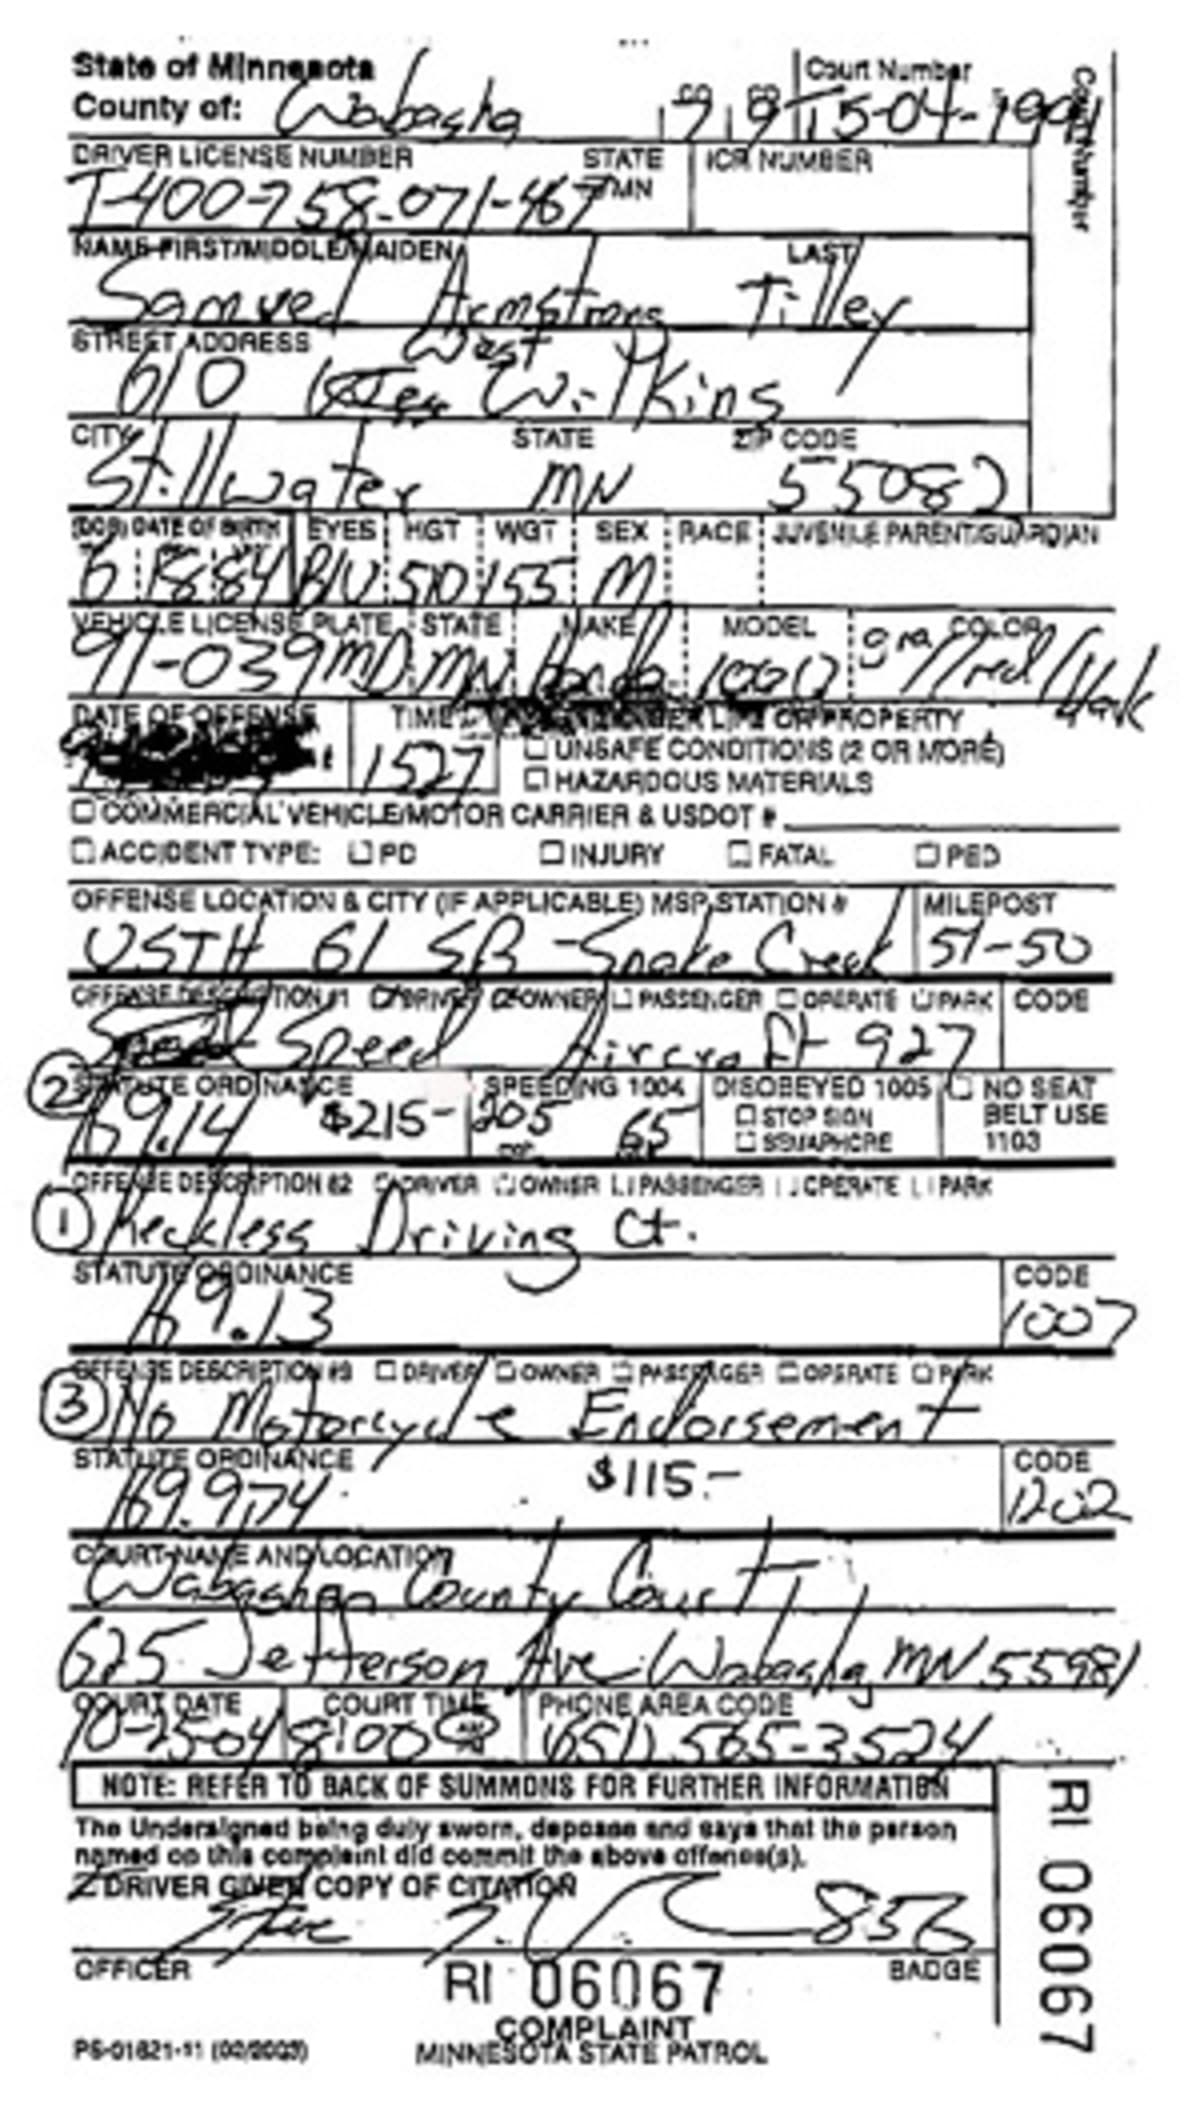 State of Minnesota
County of: Wabasha
Court Number
T5-04-1991
Court Number
DRIVER LICENSE NUMBER STATE ICR NUMBER
T-400-758-071-467 MN
NAME-FIRST/MIDDLE/MAIDEN LAST
Samuel Armstrong Tilley
STREET ADDRESS
West
610 Wilkins
CITY STATE ZIP CODE
Stillwater MN 55082
(DOB) DATE OF BIRTH EYES HGT WGT SEX RACE JUVENILE PARENT/GUARDIAN
6 18 84 BLU 510 155 M
VEHICLE LICENSE PLATE STATE MAKE MODEL COLOR
91-039MD MN Honda 1000 gra/red/
DATE OF OFFENSE TIME ENDANGER LIFE OR PROPERTY
1527
☐ UNSAFE CONDITIONS (2 OR MORE)
☐ HAZARDOUS MATERIALS
☐ COMMERCIAL VEHICLE/MOTOR CARRIER & USDOT #
☐ ACCIDENT TYPE: ☐ PD ☐ INJURY ☐ FATAL ☐ PED
OFFENSE LOCATION & CITY (IF APPLICABLE) MSP STATION # MILEPOST
USTH 61 SB - Snake Creek 51-50
OFFENSE DESCRIPTION #1 ☑ DRIVER ☑ OWNER ☐ PASSENGER ☐ OPERATE ☐ PARK CODE
Speed Aircraft 927
② STATUTE ORDINANCE SPEEDING 1004 DISOBEYED 1005 ☐ NO SEAT
169.14 $215- 205 65 ☐ STOP SIGN BELT USE
☐ SEMAPHORE 1103
OFFENSE DESCRIPTION #2 ☐ DRIVER ☐ OWNER ☐ PASSENGER ☐ OPERATE ☐ PARK
① Reckless Driving Ct.
STATUTE ORDINANCE CODE
169.13 1007
OFFENSE DESCRIPTION #3 ☐ DRIVER ☐ OWNER ☐ PASSENGER ☐ OPERATE ☐ PARK
③ No Motorcycle Endorsement
STATUTE ORDINANCE CODE
169.974 $115.- 1202
COURT NAME AND LOCATION
County Court
625 Jefferson Ave Wabasha, MN 55981
COURT DATE COURT TIME PHONE AREA CODE
10-25-04 8:00 AM (651) 565-3524
NOTE: REFER TO BACK OF SUMMONS FOR FURTHER INFORMATION
The Undersigned being duly sworn, deposes and says that the person
named on this complaint did commit the above offense(s).
☑ DRIVER GIVEN COPY OF CITATION
856
OFFICER BADGE
RI 06067
COMPLAINT
PS-01821-11 (02/2003) MINNESOTA STATE PATROL
RI 06067